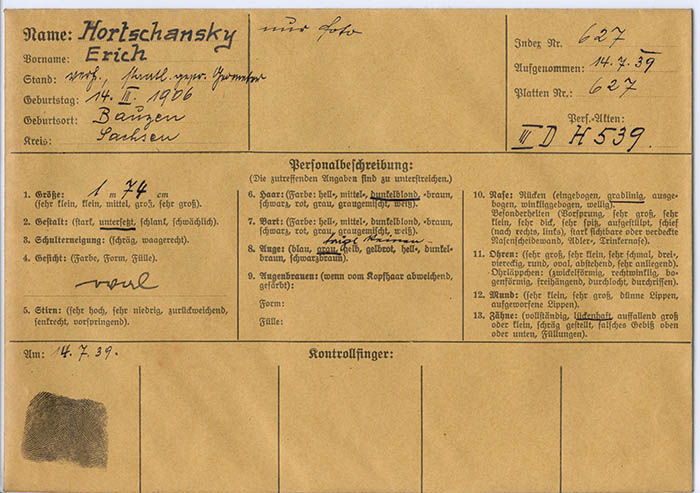 Name: Hortschansky
Vorname: Erich
Stand: verh., staatl. gepr.
Geburtstag: 14. III. 1906
Geburtsort: Bauzen
Kreis: Sachsen
nur foto
Index Nr. 627
Aufgenommen: 14.7.39
Platten Nr.: 627
Pers.-Akten:
III D H 539.
Personalbeschreibung:
(Die zutreffenden Angaben sind zu unterstreichen.)
1. Größe: 1 m 74 cm
(sehr klein, klein, mittel, groß, sehr groß).
2. Gestalt: (stark, untersetzt, schlank, schwächlich).
3. Schulterneigung: (schräg, waagerecht).
4. Gesicht: (Farbe, Form, Fülle).
oval
5. Stirn: (sehr hoch, sehr niedrig, zurückweichend,
senkrecht, vorspringend).
6. Haar: (Farbe: hell-, mittel-, dunkelblond, -braun,
schwarz, rot, grau, graugemischt, weiß).
7. Bart: (Farbe: hell-, mittel-, dunkelblond, -braun,
schwarz, rot, grau, graugemischt, weiß).
trägt keinen
8. Auge: (blau, grau, gelb, gelbrot, hell-, dunkel-
braun, schwarzbraun).
9. Augenbrauen: (wenn vom Kopfhaar abweichend,
gefärbt):
Form:
Fülle:
10. Nase: Rücken (eingebogen, gradlinig, ausge-
bogen, winkliggebogen, wellig).
Besonderheiten (Vorsprung, sehr groß, sehr
klein, sehr dick, sehr spitz, aufgestülpt, schief
(nach rechts, links), stark sichtbare oder verdeckte
Nasenscheidewand, Adler-, Trinkernase).
11. Ohren: (sehr groß, sehr klein, sehr schmal, drei-,
viereckig, rund, oval, abstehend, sehr anliegend).
Ohrläppchen: (zwickelförmig, rechtwinklig, bo-
genförmig, freihängend, durchlocht, durchrissen).
12. Mund: (sehr klein, sehr groß, dünne Lippen,
aufgeworfene Lippen).
13. Zähne: (vollständig, lückenhaft, auffallend groß
oder klein, schräg gestellt, falsches Gebiß oben
oder unten, Füllungen).
Am: 14.7.39.
Kontrollfinger: